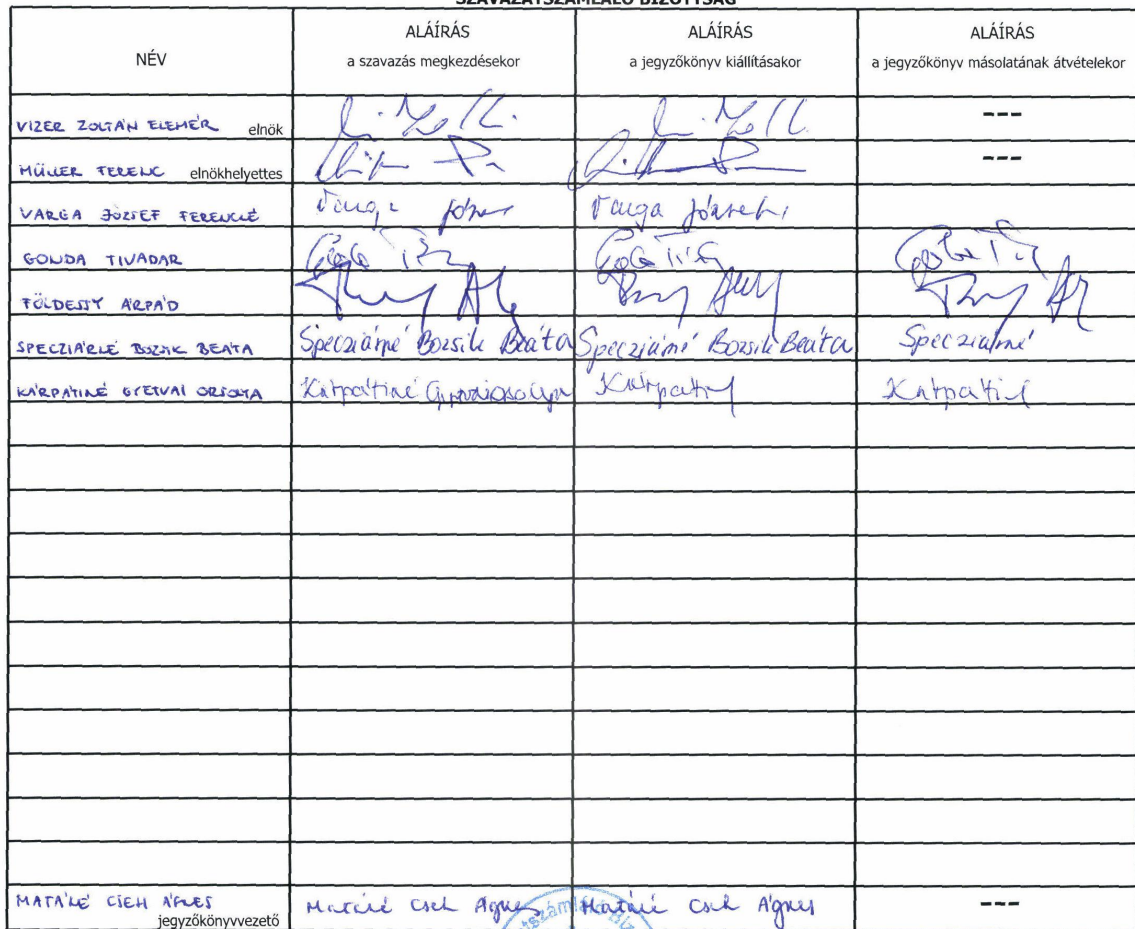 SZAVAZATSZÁMLÁLÓ BIZOTTSÁG
NÉV
ALÁÍRÁS
a szavazás megkezdésekor
ALÁÍRÁS
a jegyzőkönyv kiállításakor
ALÁÍRÁS
a jegyzőkönyv másolatának átvételekor
VIZER ZOLTÁN ELEMÉR elnök ---
MÜLLER FERENC elnökhelyettes ---
VARGA JÓZSEF FERENCNÉ Varga József Varga József
GONDA TIVADAR
FÖLDESSY ÁRPÁD
SPECZIÁRNÉ BOZSIK BEÁTA Specziárné Bozsik Beáta Specziárné Bozsik Beáta Specziárné
KÁRPÁTINÉ GYETVAI ORSOLYA Kárpátiné Kárpáti Kárpáti
MATÁNÉ CSEH ÁGNES
jegyzőkönyvvezető
Matáné Cseh Ágnes Matáné Cseh Ágnes ---